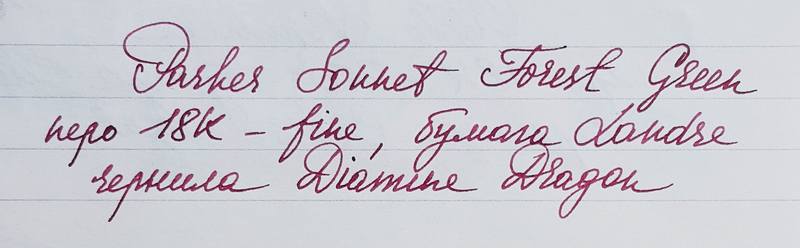 Parker Sonnet Forest Green
перо 18K - fine, бумага Landre
чернила Diamine Dragon